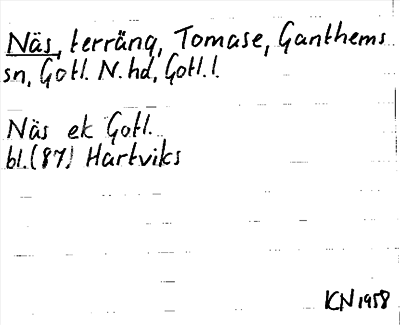 Näs, terräng, Tomase, Ganthems
sn, Gotl. N. hd, Gotl. l.
Näs ek Gotl.
bl. (87) Hartviks
KN 1958